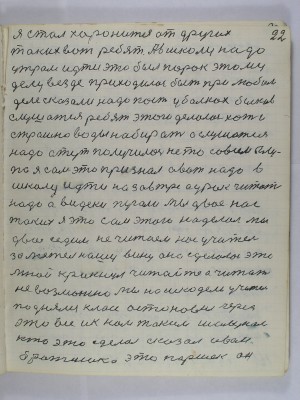 22
я стал харонится от других
таких вот ребят. Авшколу надо
утрам идти это был парок этому
делу везде приходилос быт при любом
деле сказали надо поит у балках быков
слушатся ребят этого делалос хотя
страшно воды набират а слушатся
надо стут получилос не то совсем глу-
по я сам это признал а вот надо в
школу идти на завтре а урок читат
надо а видеки пугали мы двое нас
таких я это сам этого наделал мы
двое седим не читаем нас учител
заметел нашу вину ано сделалос это
мной крикнул читайте а читат
не возможно мы на
подняли клас остоновил через
это вы их нам таким
кто это сделал сказал сам.
братишка это паршок он